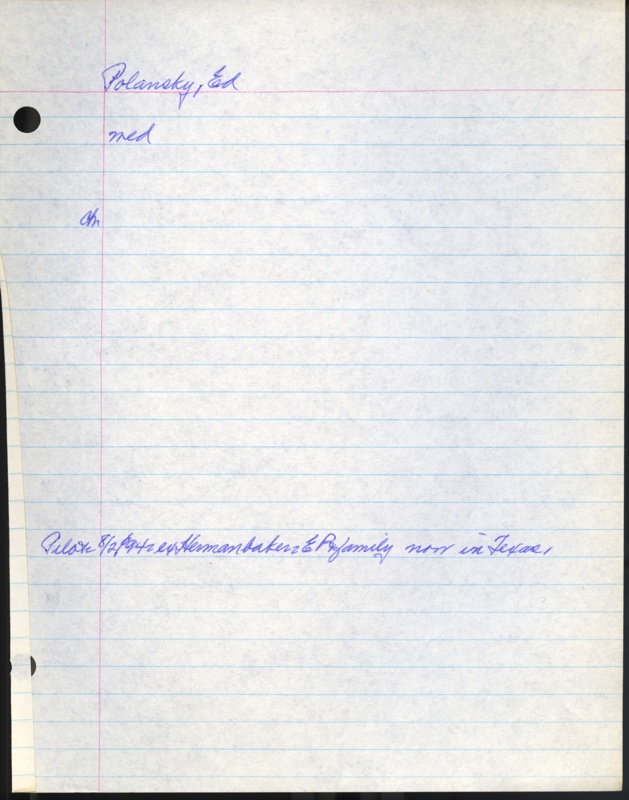 Polansky, Ed
med
ch
Pilot 8/2/94 = ex Hermanbaker = E P & family now in Texas.